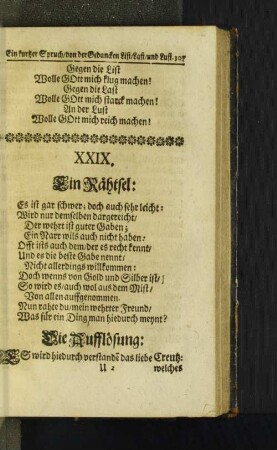 Ein kurtzer Spruch/von der Gedancken List/Last/und Lust. 307
Gegen die List
Wolle GOtt mich klug machen!
Gegen die Last
Wolle GOtt mich starck machen!
An der Lust
Wolle GOtt mich reich machen!
XXIX.
Ein Rähtsel:
Es ist gar schwer; doch auch sehr leicht:
Wird nur demselben dargereicht/
Der wehrt ist guter Gaben;
Ein Narr wils auch nicht haben/
Offt ists auch dem/der es recht kennt/
Und es die beste Gabe nennt/
Nicht allerdings willkommen:
Doch wenns von Gold und Silber ist/
So wird es/auch wol aus dem Mist/
Von allen auffgenommen.
Nun rahte du/mein wehrter Freund/
Was für ein Ding man hiedurch meynt?
Die Aufflösung:
ES wird hiedurch verstandẽ das liebe Creutz:
U 2 welches